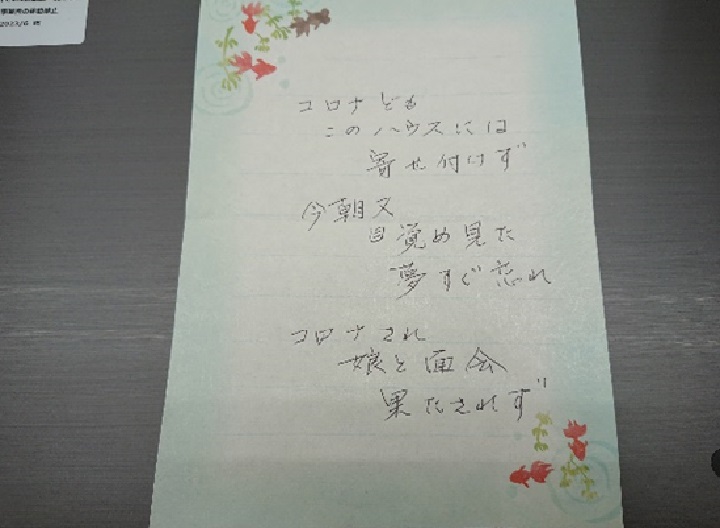 2023/6
コロナども
このハウスには
寄せ付けず
今朝又
目覚め見た
夢すぐ忘れ
コロナされ
娘と面会
果たされず